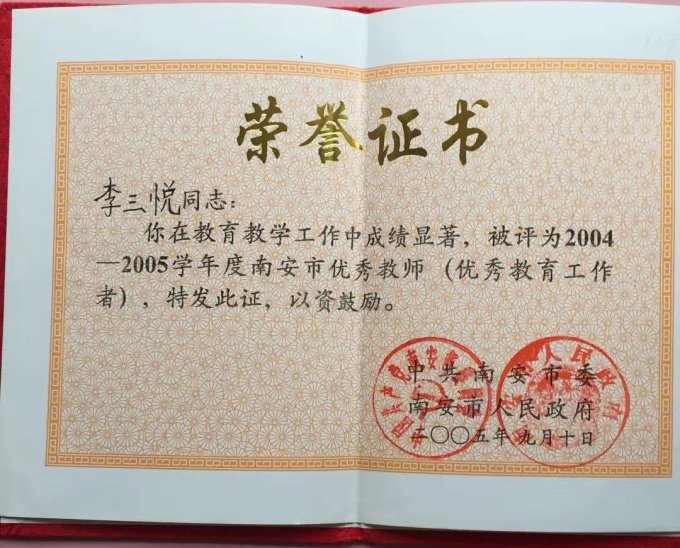 荣誉证书
李三悦同志：
你在教育教学工作中成绩显著，被评为2004
—2005学年度南安市优秀教师（优秀教育工作
者），特发此证，以资鼓励。
中共南安市委
南安市人民政府
二〇〇五年九月十日